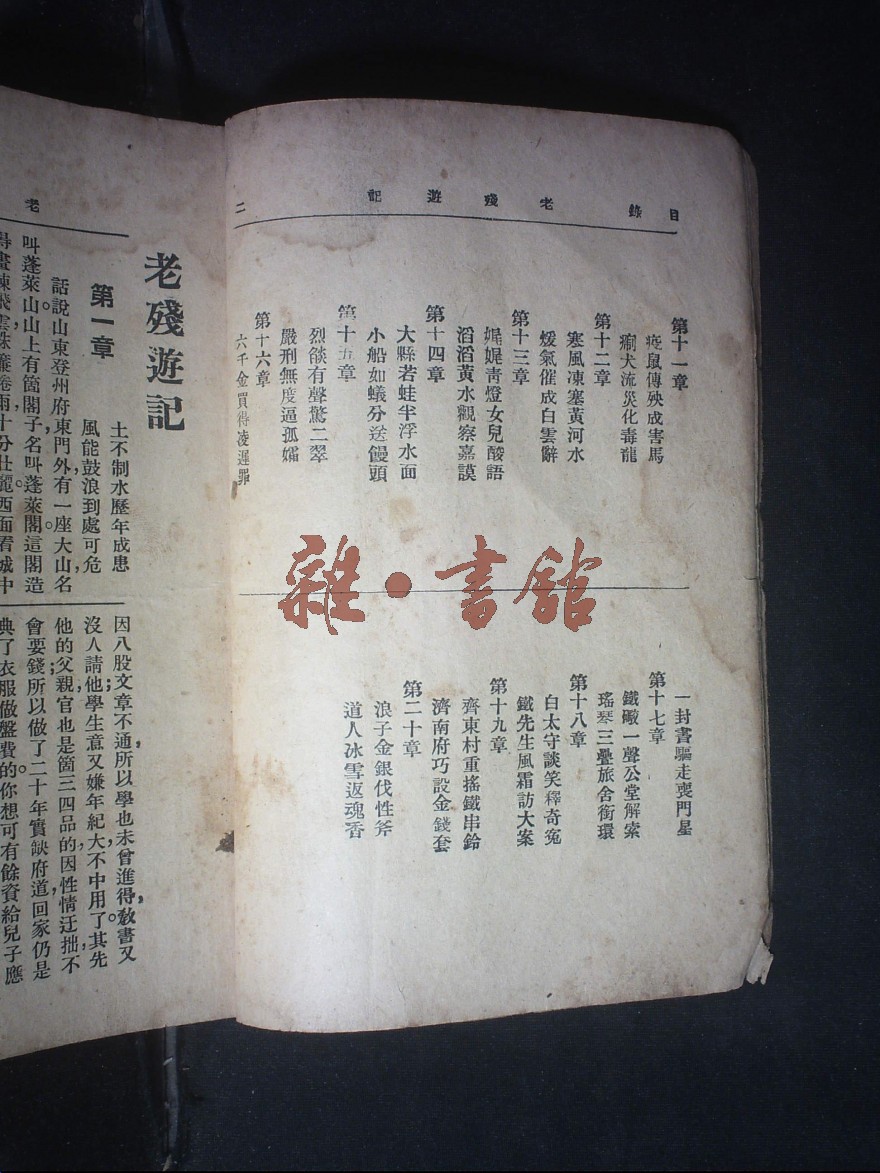 目錄 老殘遊記 二
第十一章
疫鼠傳殃成害馬
瘈犬流災化毒龍
第十二章
寒風凍塞黃河水
煖氣催成白雪辭
第十三章
娓娓青燈女兒酸語
滔滔黃水觀察嘉謨
第十四章
大縣若蛙半浮水面
小船如蟻分送饅頭
第十五章
烈燄有聲驚二翠
嚴刑無度逼孤孀
第十六章
六千金買得凌遲罪
一封書驅走喪門星
第十七章
鐵礮一聲公堂解索
瑤琴三疊旅舍銜環
第十八章
白太守談笑釋奇冤
鐵先生風霜訪大案
第十九章
齊東村重搖鐵串鈴
濟南府巧設金錢套
第二十章
浪子金銀伐性斧
道人冰雪返魂香
雜·書館
老
老殘遊記
第一章
土不制水歷年成患
風能鼓浪到處可危
話說山東登州府東門外有一座大山名
叫蓬萊山。山上有箇閣子，名叫蓬萊閣。這閣造
畫棟飛雲，珠簾卷雨，十分壯麗。西面看城中
因八股文章不通，所以學也未曾進得，教書又
沒人請他，學生意又嫌年紀大，不中用了。其先
他的父親官也是箇三四品的，因性情迂拙，不
會要錢，所以做了二十年實缺，府道回家，仍是
典了衣服做盤費的。你想可有餘資給兒子應